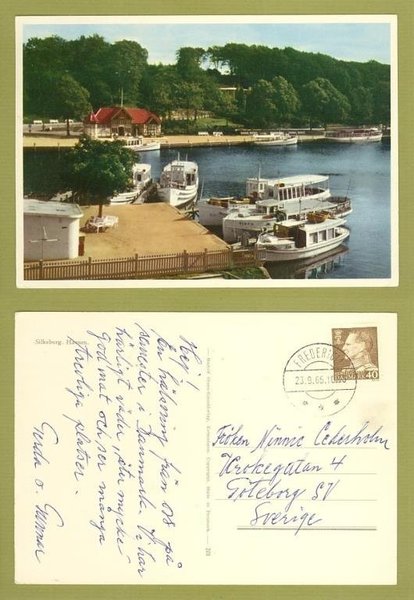 Silkeborg. Havnen.
Hej!
En hälsning från oss på
semester i Danmark. Vi har
härligt väder, äter mycke
god mat och ser många
trevliga platser.
Gerda o. Gunnar
FREDER
23.9.65.
40
Fröken Minnie Cederholm
Krokegatan 4
Göteborg SV
Sverige